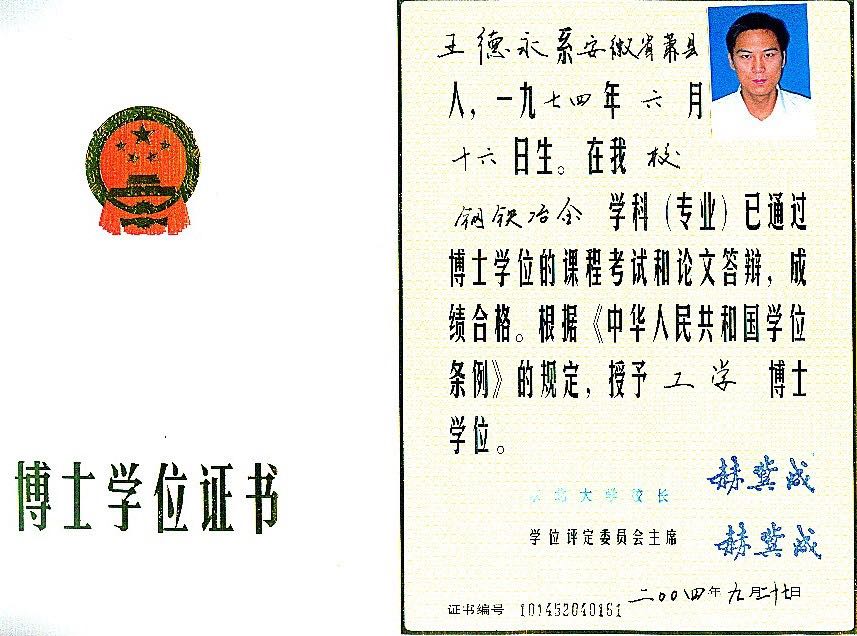 博士学位证书
王德永系安徽省萧县
人，一九七四年六月
十六日生。在我校
钢铁冶金学科（专业）已通过
博士学位的课程考试和论文答辩，成
绩合格。根据《中华人民共和国学位
条例》的规定，授予工学博士
学位。
东北大学校长 赫冀成
学位评定委员会主席 赫冀成
二〇〇四年九月二十七日
证书编号 101452040161